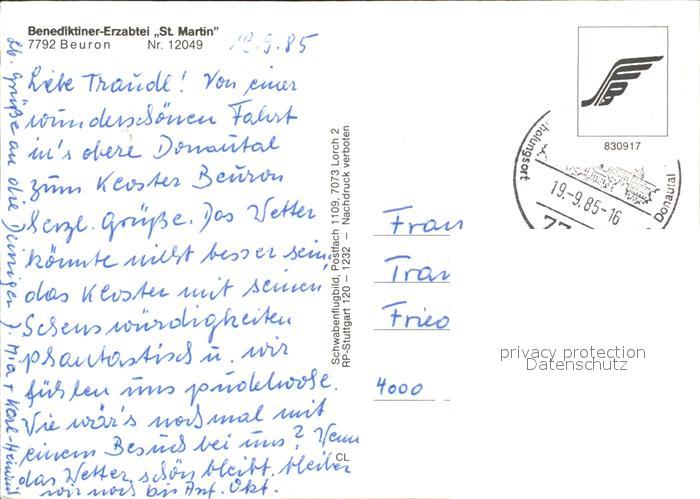 Benediktiner-Erzabtei „St. Martin"
7792 Beuron Nr. 12049
19.9.85
Liebe Traudl! Von einer
wunderschönen Fahrt
in's obere Donautal
zum Kloster Beuron
herzl. Grüße. Das Wetter
könnte nicht besser sein,
das Kloster mit seinen
Sehenswürdigkeiten
phantastisch u. wir
fühlen uns pudelwohl.
Wie wär's nochmal mit
einem Besuch bei uns? Wenn
das Wetter schön bleibt, bleiben
wir noch bis Anf. Okt.
Lb. Grüße an die Deinigen
Mia + Karl-Heinz
Schwabenflugbild, Postfach 1109, 7073 Lorch 2
RP-Stuttgart 120 – 1232 – Nachdruck verboten
CL
830917
holungsort
Donautal
19.-9.85-16
77
Frau
Trau
Fried
4000
privacy protection
Datenschutz